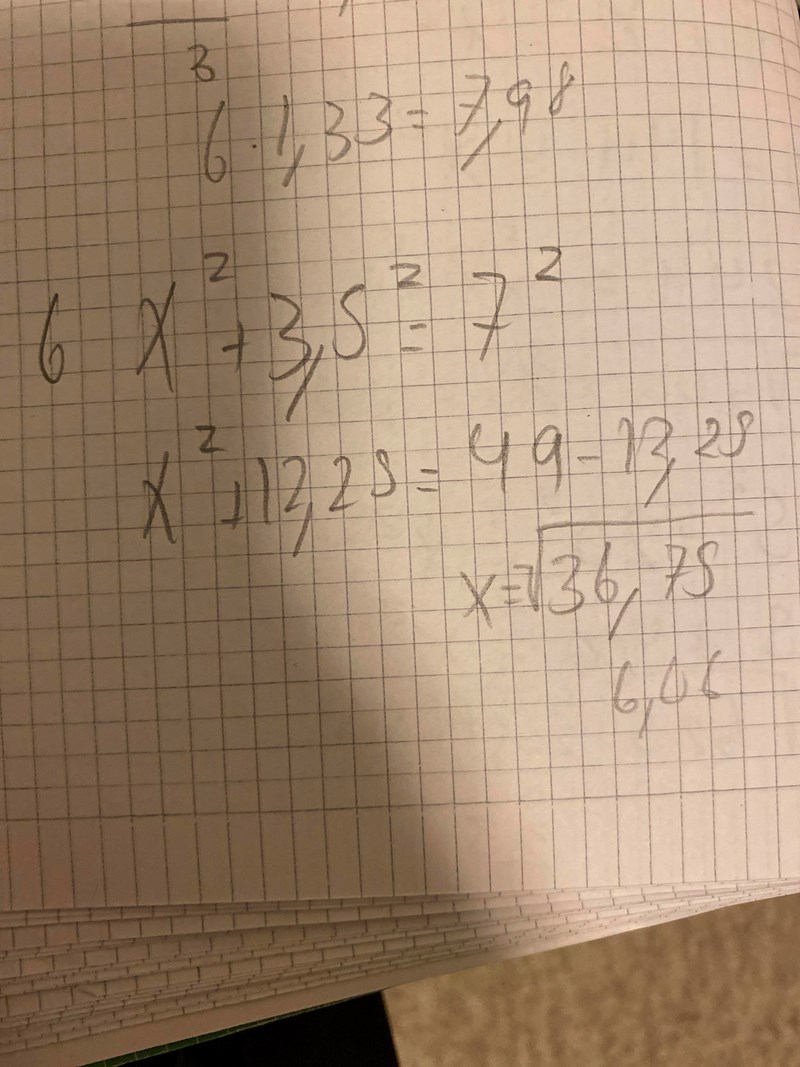 3
6·1,33=7,98
6 x²+3,5²=7²
x²+12,25=49-12,25
x=√36,75
6,06